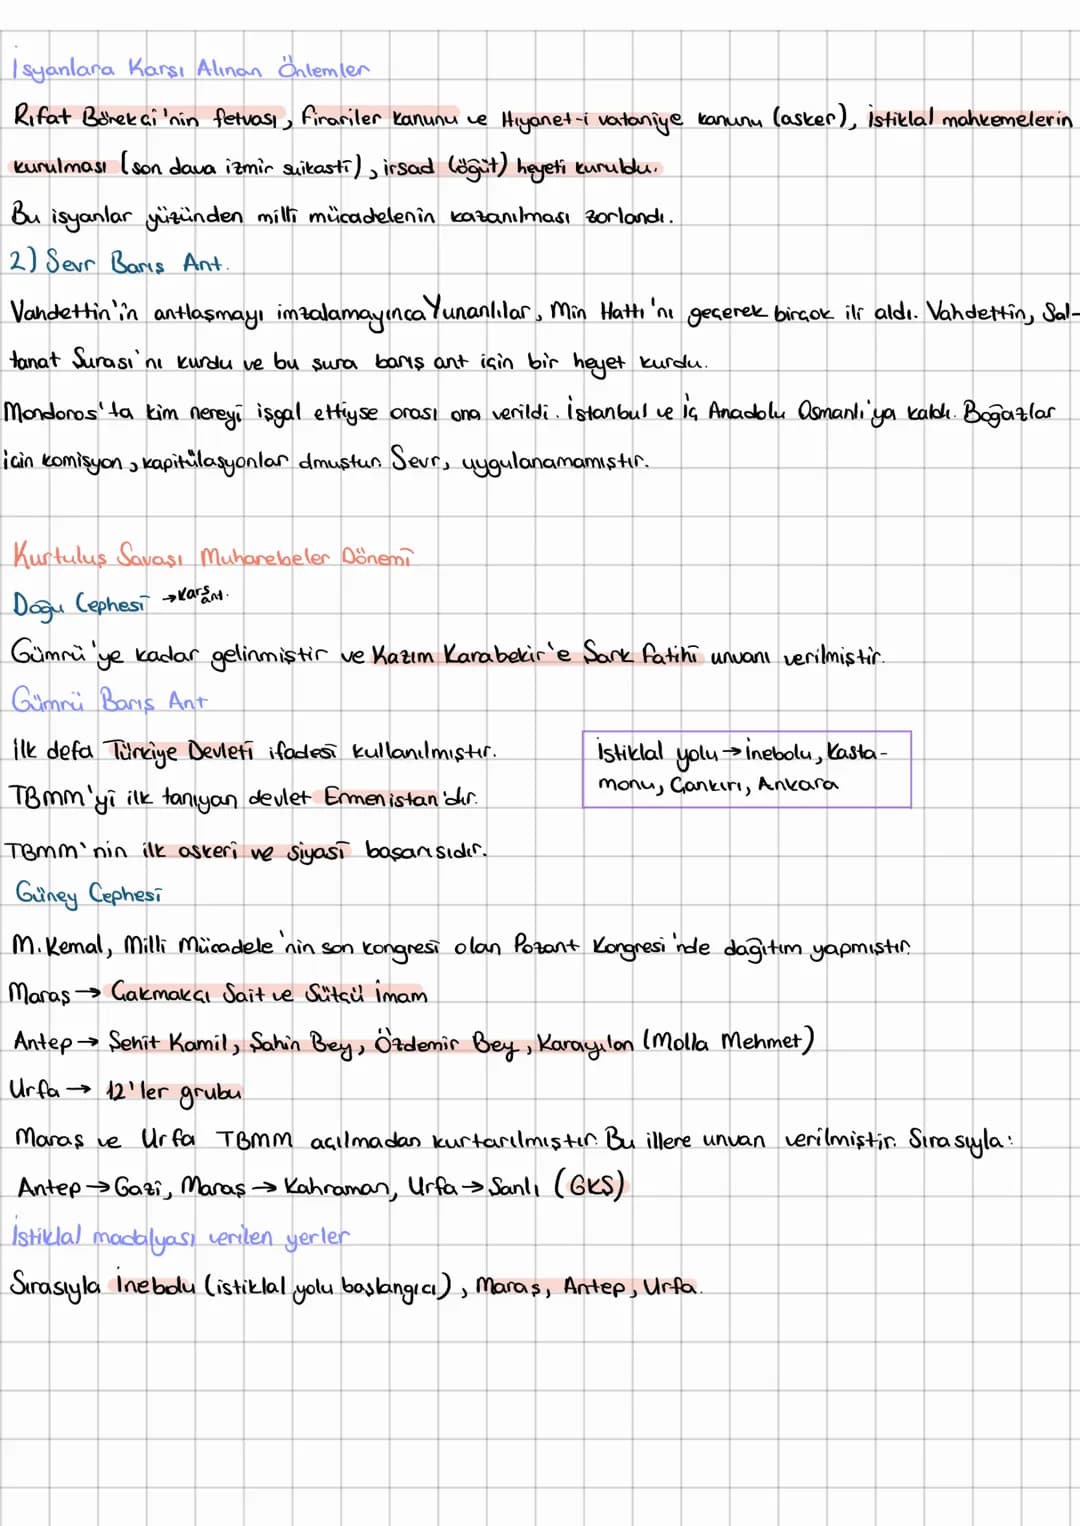 İsyanlara Karşı Alınan Önlemler
Rıfat Börekçi'nin fetvası, firariler kanunu ve Hıyanet-i vataniye kanunu (asker), istiklal mahkemelerin
kurulması (son dava izmir suikasti), irşad (öğüt) heyeti kuruldu.
Bu isyanlar yüzünden milli mücadelenin kazanılması zorlandı.
2) Sevr Barış Ant.
Vahdettin'in antlaşmayı imzalamayınca Yunanlılar, Min Hattı'nı geçerek birçok ilr aldı. Vahdettin, Sal-
tanat Şurası'nı kurdu ve bu şura barış ant için bir heyet kurdu.
Mondoros'ta kim nereyi işgal ettiyse orası ona verildi. İstanbul ve İç Anadolu Osmanlı'ya kaldı. Boğazlar
için komisyon, kapitülasyonlar olmuştur. Sevr, uygulanamamıştır.
Kurtuluş Savaşı Muharebeler Dönemi
Doğu Cephesi → Kars ant.
Gümrü'ye kadar gelinmiştir ve Kazım Karabekir'e Şark Fatihi unvanı verilmiştir.
Gümrü Barış Ant
İlk defa Türkiye Devleti ifadesi kullanılmıştır.
TBMM'yi ilk tanıyan devlet Ermenistan'dır.
TBMM'nin ilk askeri ve siyasi başarısıdır.
İstiklal yolu → İnebolu, Kasta-
monu, Çankırı, Ankara
Güney Cephesi
M. Kemal, Milli Mücadele'nin son kongresi olan Pozant Kongresi'nde dağıtım yapmıştır.
Maraş → Çakmakçı Sait ve Sütçü İmam
Antep → Şehit Kamil, Şahin Bey, Özdemir Bey, Karayılan (Molla Mehmet)
Urfa → 12'ler grubu
Maraş ve Urfa TBMM açılmadan kurtarılmıştır. Bu illere unvan verilmiştir. Sırasıyla:
Antep → Gazi, Maraş → Kahraman, Urfa → Şanlı (GKŞ)
İstiklal madalyası verilen yerler
Sırasıyla İnebolu (istiklal yolu başlangıcı), Maraş, Antep, Urfa.